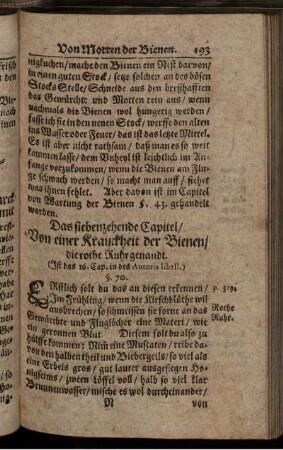 Von Motten der Bienen. 193
nigkuchen/ mache den Bienen ein Nest darvon/
in einen guten Stock/ setze solchen an des bösen
Stocks Stelle/ Schneide aus den breßhafften
das Gewürcht und Motten rein aus/ wenn
nachmals die Bienen wol hungerig werden/
lasse ich sie in den neuen Stock/ werffe den alten
ins Wasser oder Feuer/ das ist das letzte Mittel.
Es ist aber nicht rathsam/ daß man es so weit
kommen lasse/ dem Unheyl ist leichtlich im An-
fange vorzukommen/ wenn die Bienen am Flu-
ge schwach werden/ so macht man auff/ siehet
was ihnen fehlet. Aber davon ist im Capitel
von Wartung der Bienen §. 43. gehandelt
worden.
Das siebenzehende Capitel/
Von einer Kranckheit der Bienen/
die rothe Ruhr genandt.
(Ist das 16. Cap. in des Autoris libell.)
§. 70.
ERstlich solt du das an diesen erkennen/
Im Frühling/ wenn die Kirschblüthe wil
ausbrechen/ so schmeissen sie forne an das
Gewürchte und Fluglöcher eine Materi/ wie
ein geronnen Blut. Diesem solt du also zu
hülffe kommen: Nim eine Muscaten/ reibe da-
von den halben theil und Biebergeils/ so viel als
eine Erbeis gros/ gut lauter ausgeseigen Ho-
nigseims/ zween Löffel voll/ halb so viel klar
Brunnenwasser/ mische es wol durcheinander/
N von
p. 319.
Rothe
Ruhr.